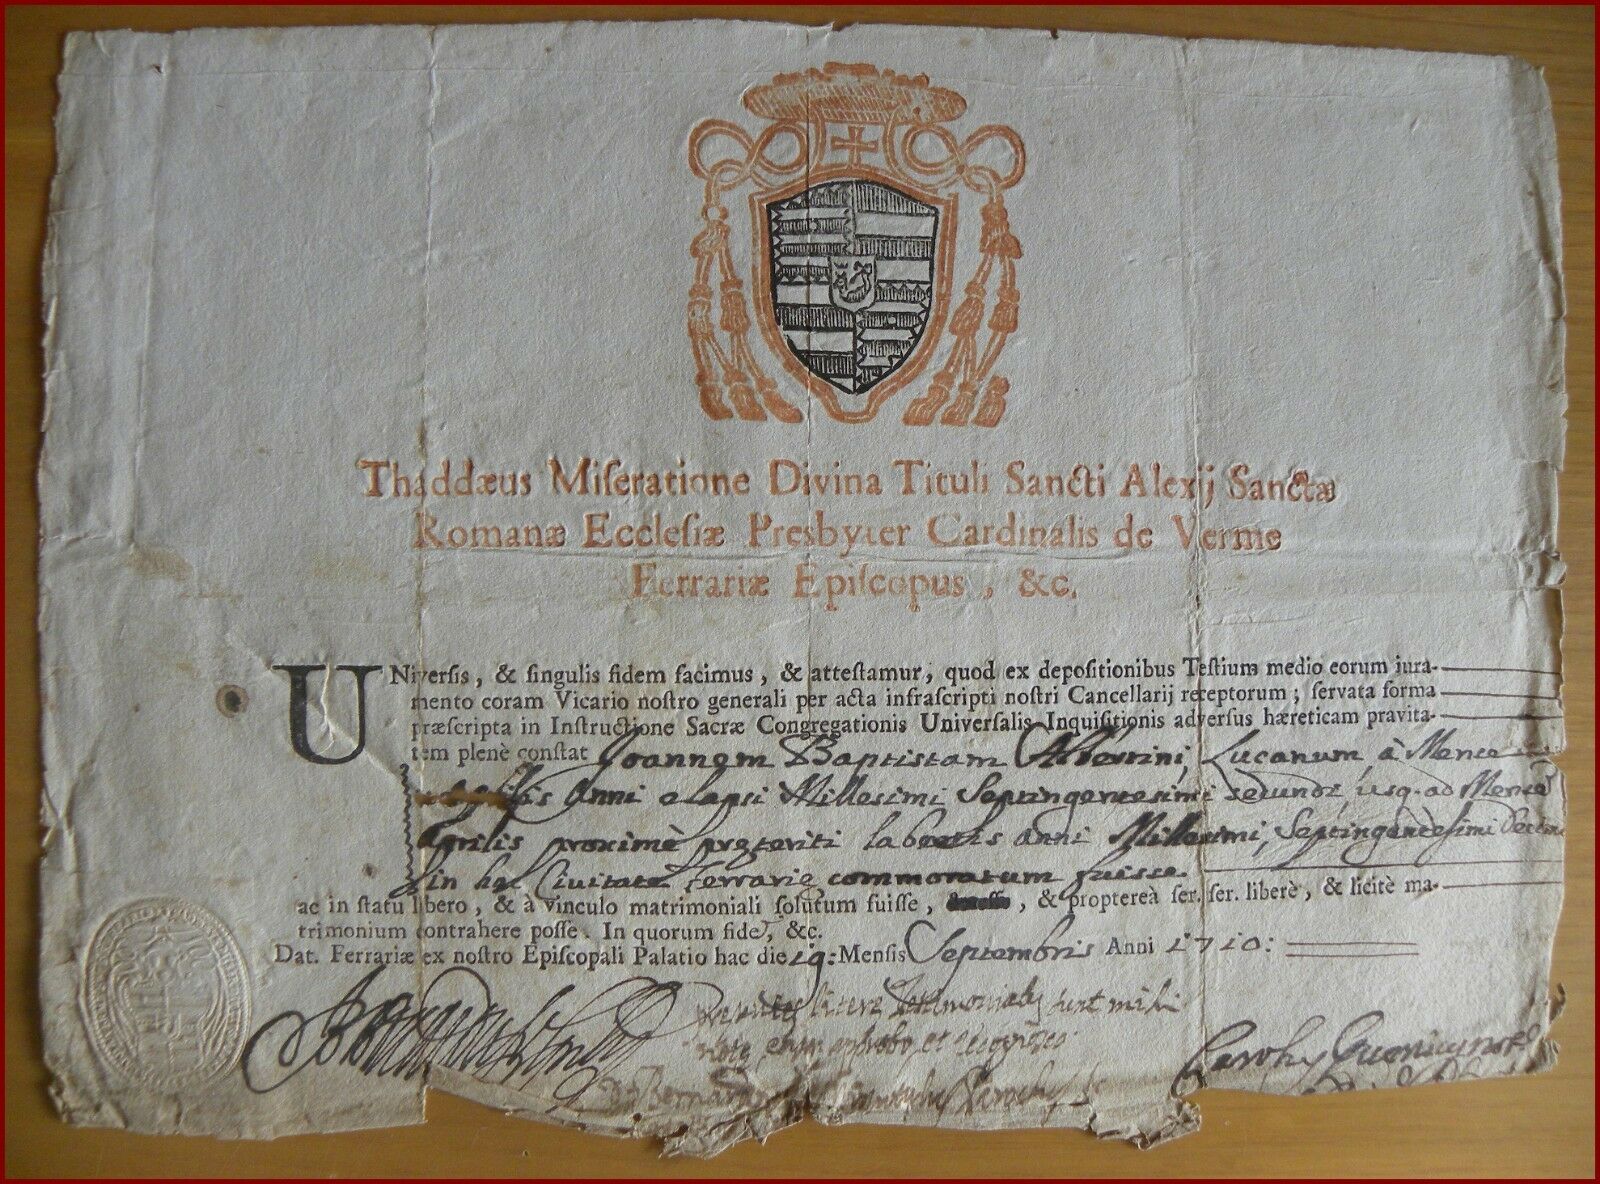 Thaddæus Miſeratione Divina Tituli Sancti Alexij Sanctæ
Romanæ Eccleſiæ Presbyter Cardinalis de Verme
Ferrariæ Epiſcopus, &c.
UNiverſis, & ſingulis fidem facimus, & atteſtamur, quod ex depoſitionibus Teſtium medio eorum iura-
mento coram Vicario noſtro generali per acta infraſcripti noſtri Cancellarij receptorum; ſervata forma
præſcripta in Inſtructione Sacræ Congregationis Univerſalis Inquiſitionis adverſus hæreticam pravita-
tem plenè conſtat Joannem Baptistam Albertini, Lucanum, à Mense
Anni elapsi Millesimi Septingentesimi secundi, usq. ad Mense
Aprilis proximè preteriti labentis anni Millesimi, Septingentesimi Decimi
in hac Civitate Ferrarie commoratum fuisse
ac in ſtatu libero, & à vinculo matrimoniali ſolutum fuiſſe, , & proptereà ſer. ſer. liberè, & licitè ma-
trimonium contrahere poſſe. In quorum fidē, &c.
Dat. Ferrariæ ex noſtro Epiſcopali Palatio hac die 19: Menſis Septembris Anni 1710:
presentes litere testimoniales sunt mihi
note, approbo, et
Parochus
Carolus